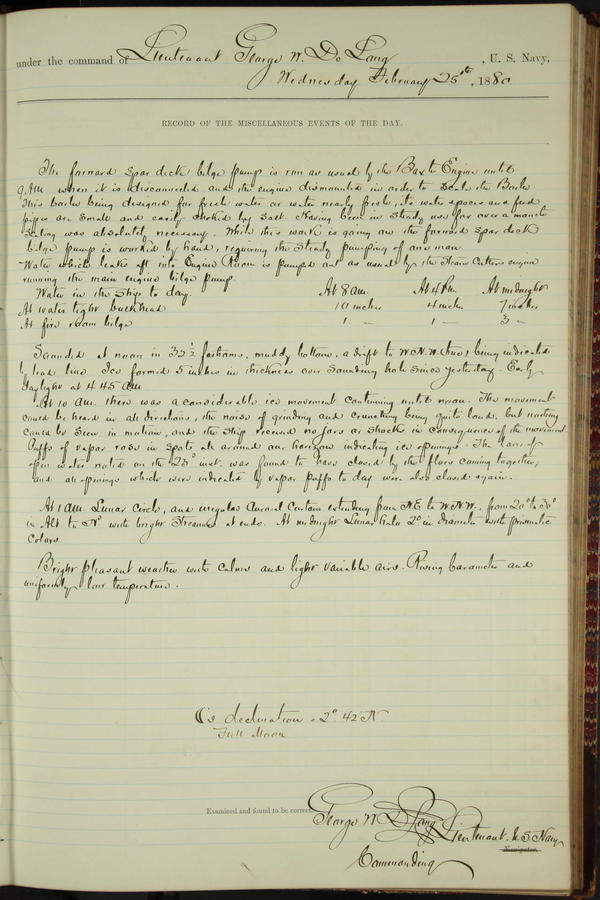 under the command of Lieutenant George W. De Long, U. S. Navy,
Wednesday February 25th, 1880
RECORD OF THE MISCELLANEOUS EVENTS OF THE DAY.
The forward spar deck bilge pump is run as usual by the Baxter Engine until
9. AM when it is disconnected and the engine dismounted in order to scale the Boiler
This boiler being designed for fresh water or water nearly fresh, its water spaces and feed
pipes are small and easily choked by salt. Having been in steady use for over a month
scaling was absolutely necessary. While this work is going on the forward spar deck
bilge pump is worked by hand, requiring the steady pumping of one man
Water which leaks aft into Engine Room is pumped out as usual by the Steam Cutters engine
running the main engine bilge pump.
Water in the ship to day. At 8 am. At 4 Pm. At midnight
At water tight bulkhead 10 inches 4 inches 7 inches
At fire room bilge 1 — 1 — 3 —
Sounded at noon in 32 ½ fathoms, muddy bottom, a drift to W.N.W. (true) being indicated
by lead line. Ice formed 5 inches in thickness over sounding hole since yesterday. Early
daylight at 4.45 am
At 10 am. there was a considerable ice movement continuing until noon. The movement
could be heard in all directions, the noise of grinding and crunching being quite loud. but nothing
could be seen in motion, and the ship received no jars or shock in consequence of the movement.
Puffs of vapor rose in spots all around our horizon indicating ice openings. The lane of
open water noted on the 23d inst. was found to have closed by the floes coming together,
and all openings which were indicated by vapor puffs to day were also closed again.
At 1 am. Lunar circle, and irregular Auroral Curtain extending from N.E. to W.N.W., from 20° to 30°
in Alt to Nd with bright Streamers at ends. At midnight Lunar halo 2° in diameter with prismatic
colors
Bright pleasant weather with calms and light variable airs. Rising barometer and
uniformly low temperature.
☾'s declination = 2° 42' N
Full Moon
Examined and found to be correct.
George W. De Long Lieutenant. U. S Navy
Navigator.
Commanding